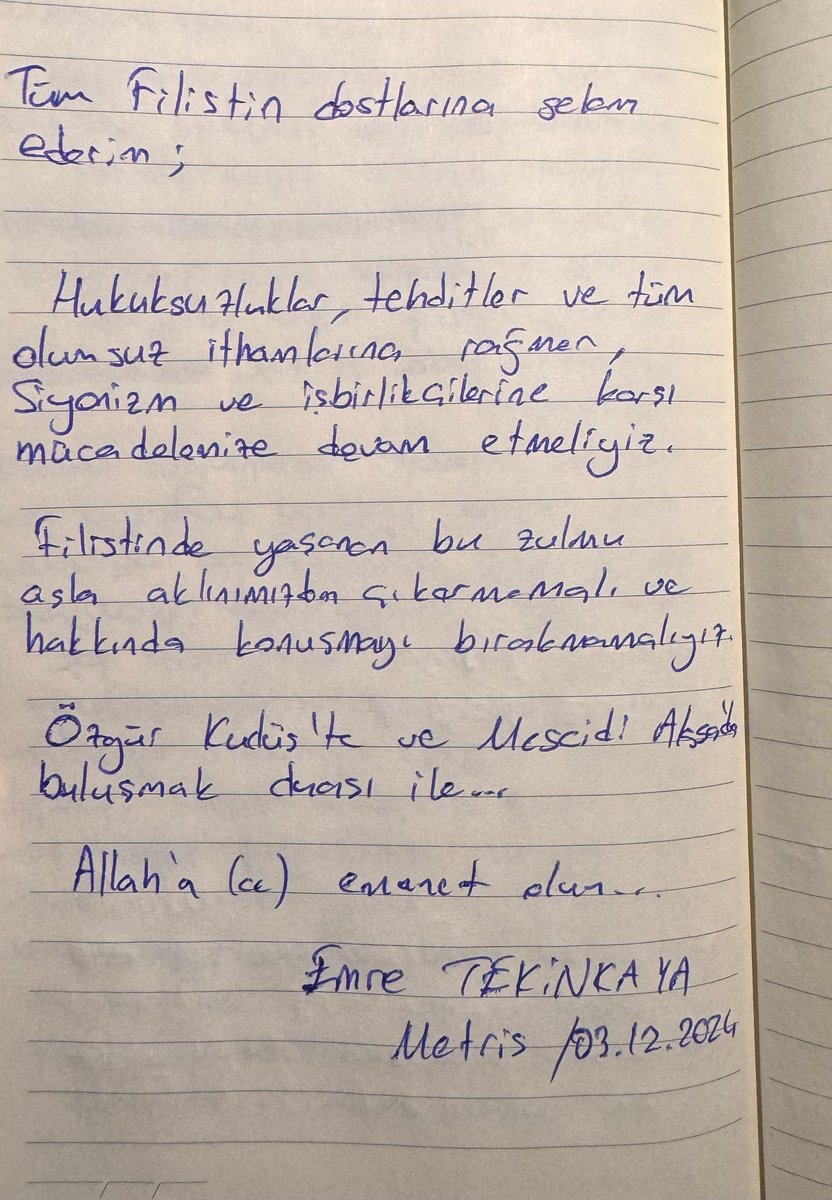 Tüm Filistin dostlarına selam
ederim;
Hukuksuzluklar, tehditler ve tüm
olumsuz ithamlarına rağmen,
Siyonizm ve işbirlikçilerine karşı
mücadelemize devam etmeliyiz.
Filistinde yaşanan bu zulmü
asla aklınımızdan çıkarmamalı ve
hakkında konuşmayı bırakmamalıyız.
Özgür Kudüs'te ve Mescidi Aksa'da
buluşmak duası ile...
Allah'a (cc) emanet olun...
Emre TEKİNKAYA
Metris /03.12.2024